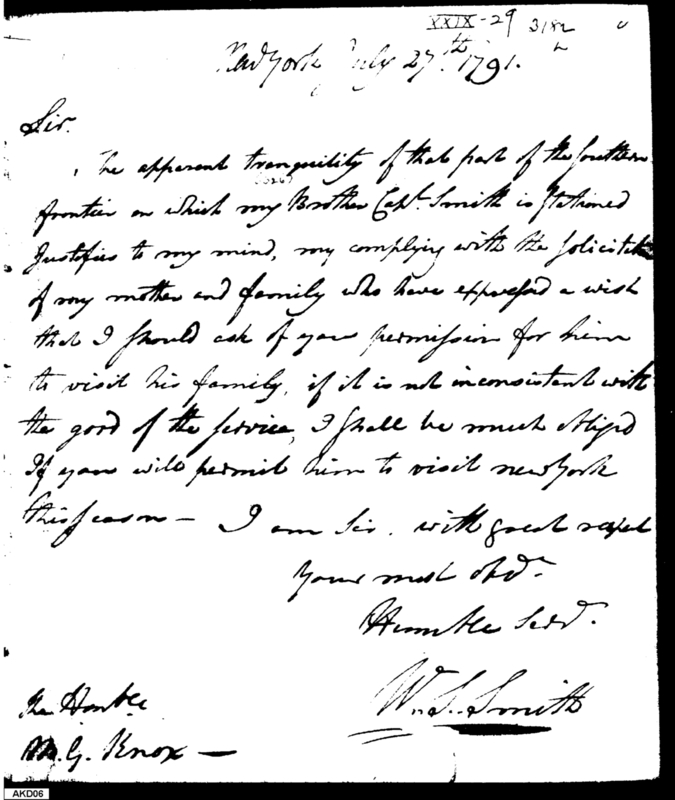 XXIX-29 3182
New York July 27th. 1791.
Sir.
The apparent tranquility of that part of the Southern
frontier on which my Brother Capt. Smith is stationed
Justifies to my mind, my complying with the solicitati
of my mother and family who have expressed a wish
that I should ask of your permission for him
to visit his family, if it is not inconsistent with
the good of the service, I shall be much oblig'd
If you will permit him to visit new York
this season — I am Sir. with great respet
Your most obdt.
Humble Servt.
W. S. Smith
The Honble
M. G. Knox —
AKD06